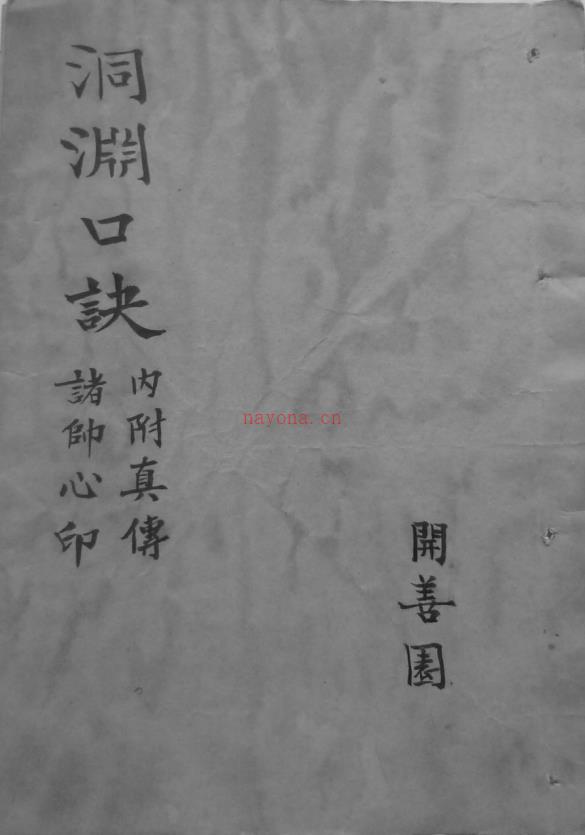 開善園
洞淵口訣
內附真傳
諸帥心印
nayona.cn